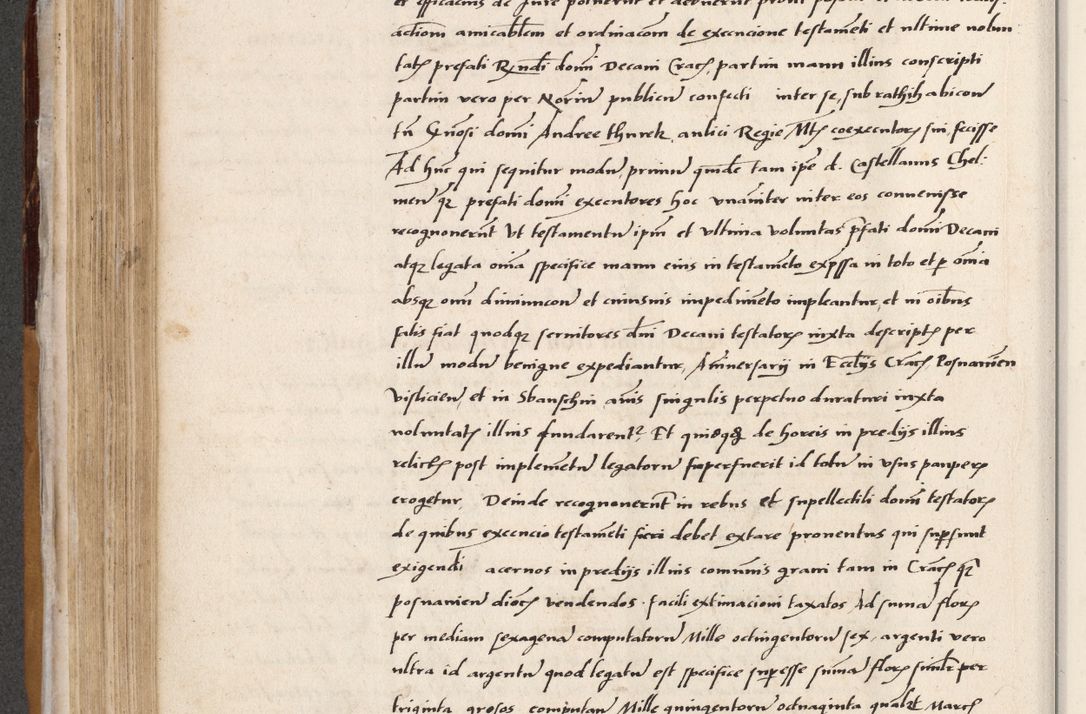 et efficacius de Jure potuerunt et debuerunt
actionem amicabilem et ordinacom de execucione testameti et ultime volun
tatis prefati Rndi domi Decani Crac, partim manu illius conscripti
partim vero per Noriu publicu confecti inter se, sub rathihabicoe
tn Gnosi domi Andree thurek, aulici Regie Mtis coexecutoris sui, fecisse
Ad hnc qui sequitur modu, primu quide tam ipe d. Castellanus Chel:
men qz prefati domi executores hoc unaniter inter eos convenisse
recognoverut Ut testamentu ipm et ultima voluntas pfati domi Decani
atqz legata oma specifice manu eius in testameto expssa in toto et p omia
absqz omi diminucoe et cuiusuis impedimeto impleantur, et in oibus
satis fiat quodqz servitores dni Decani testatoris iuxta descriptis per
illu modu benigne expediantur, Anniversarij in Ecclijs Crac, Posnanien
Vislicien, et in Sbanschin, anis singulis perpetuo duraturi iuxta
voluntatem illius fundarentur. Et quidqz de horeis in predijs illius
relictis post implemetu legatoru superfuerit id totu in usus pauperu
erogetur, Deinde recognoverut in rebus et supellectili domi testatoris
de quibus execucio testameti fieri debet extare proventus qui supsunt
exigendi acervos in predijs illius comunis grani tam in Crac qz
posnanien dioc vendendos. facili extimacioni taxatos Ad suma flor
per mediam sexagena computatoru Mille octingentoru sex, argenti vero
ultra id argentu quod legatu est specifice supesse suma flor similr per
triginta grosos computan Mille quingentoru octuaginta qualt Marc